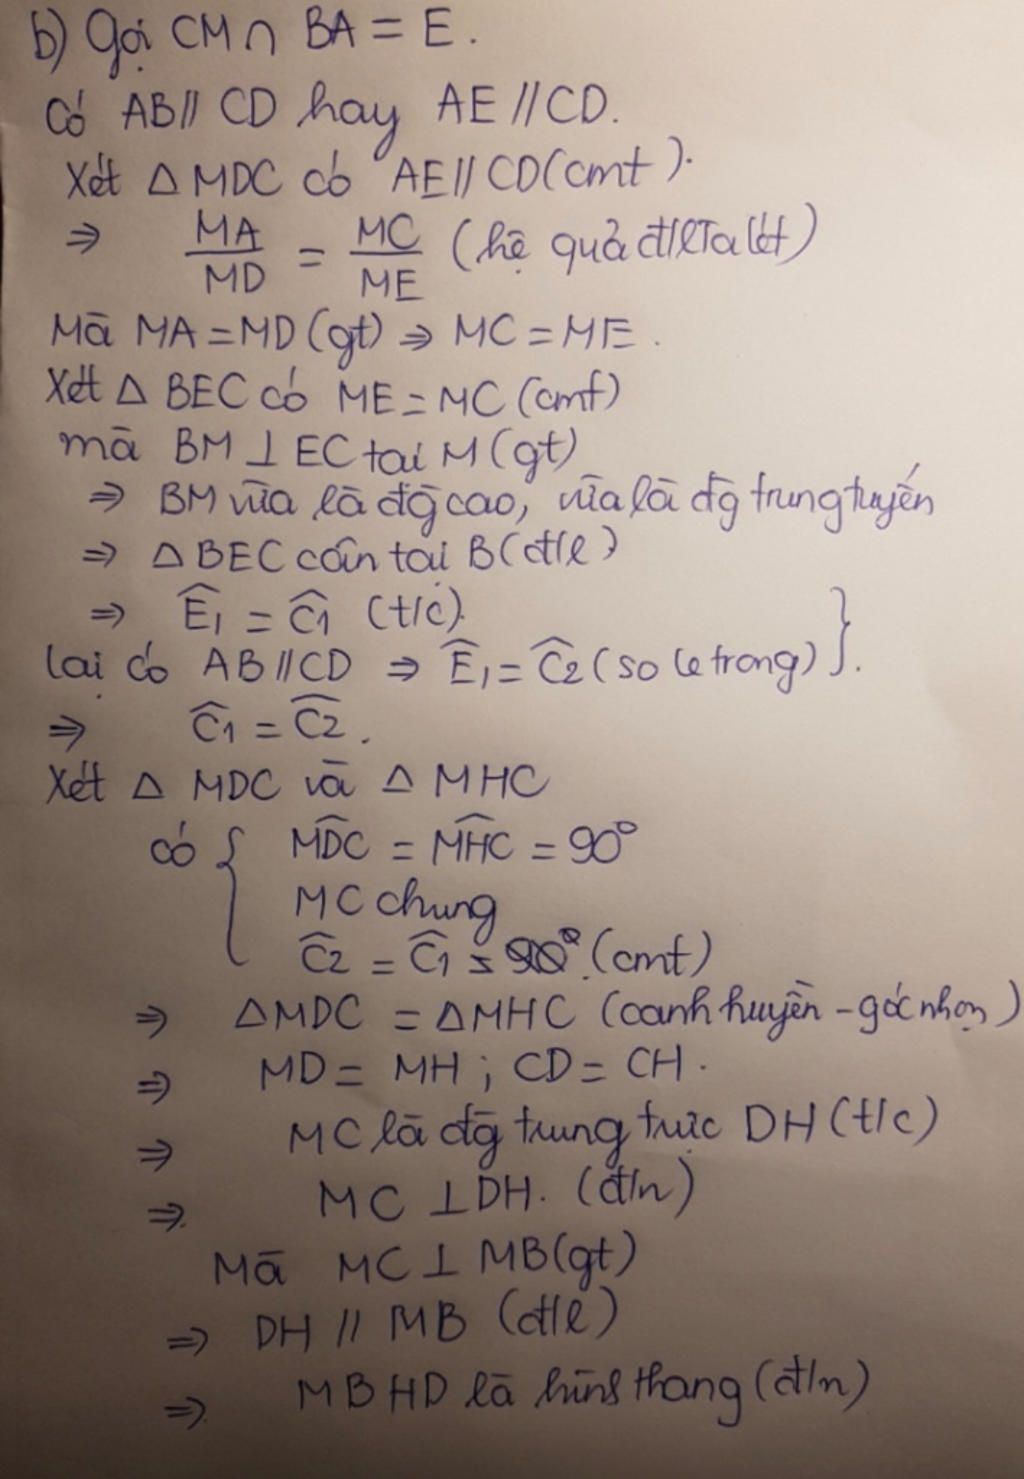 b) Gọi CM ∩ BA = E.
Có AB // CD hay AE // CD.
Xét Δ MDC có AE // CD (cmt).
⇒ MA/MD = MC/ME (hệ quả đ/l Ta lét)
Mà MA = MD (gt) ⇒ MC = ME.
Xét Δ BEC có ME = MC (cmt)
mà BM ⊥ EC tại M (gt)
⇒ BM vừa là đg cao, vừa là đg trung tuyến
⇒ Δ BEC cân tại B (đ/l)
⇒ Ê1 = Ĉ1 (t/c).
lại có AB // CD ⇒ Ê1 = Ĉ2 (so le trong) }.
⇒ Ĉ1 = Ĉ2.
Xét Δ MDC và Δ MHC
có { M̂DC = M̂HC = 90°
MC chung
Ĉ2 = Ĉ1 (cmt)
⇒ ΔMDC = ΔMHC (canh huyền - góc nhọn)
⇒ MD = MH ; CD = CH.
⇒ MC là đg trung trực DH (t/c)
⇒ MC ⊥ DH. (đ/n)
Mà MC ⊥ MB (gt)
⇒ DH // MB (đ/l)
⇒ MBHD là hình thang (đ/n)